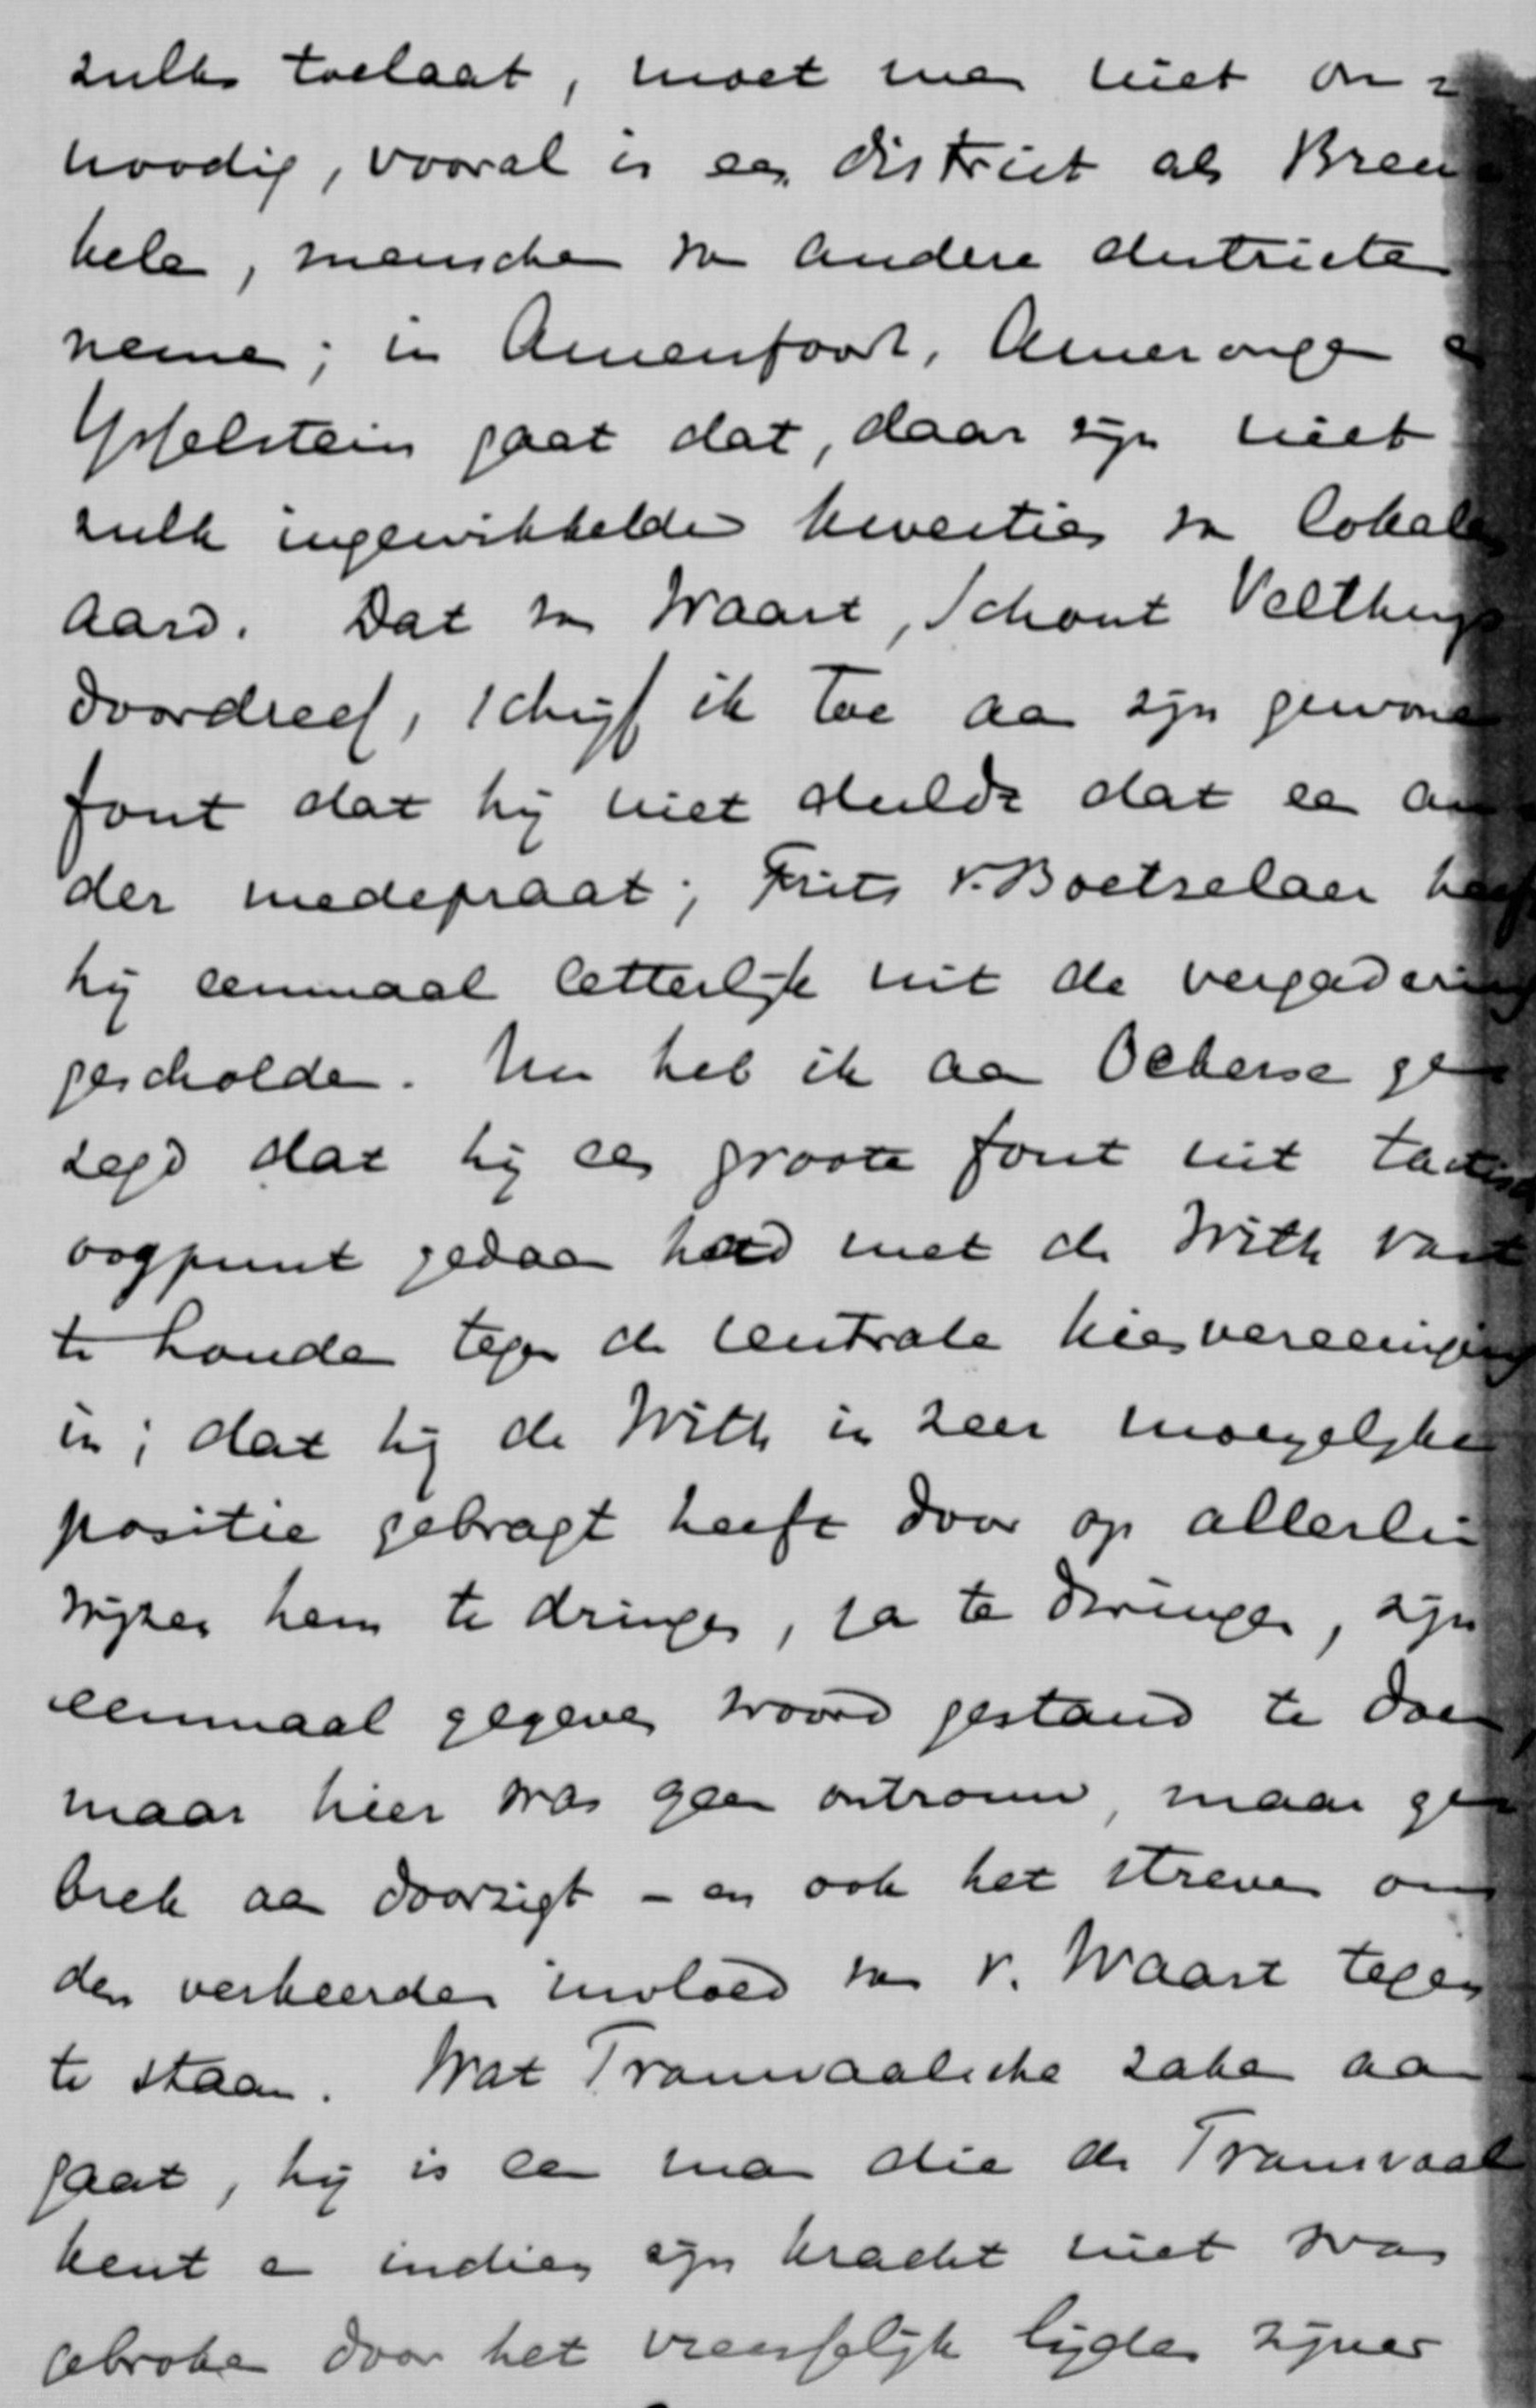 zulks toelaat, moet men niet on=
noodig, vooral in een district als Breu
kelen, menschen van andere districten
nemen; in Amersfoort, Amerongen en
IJsselstein gaat dat, daar zijn niet
zulk ingewikkelde kwesties van lokalen
aard. Dat van Waart, Schout Velthuys
doordreef, schrijf ik toe aan zijn gewone
fout dat hij niet duldt dat een an
der medepraat; Frits v. Boetzelaer heeft
hij eenmaal letterlijk uit de vergadering
gescholden. Nu heb ik aan Ockerse ge
zegd dat hij een groote fout uit tactisch
oogpunt gedaan had met de With vast
te houden tegen de centrale kiesvereeniging
in; dat hij de With in zeer moeyelijke
positie gebragt heeft door op allerlei
wijzen hem te dringen, ja te dwingen, zijn
eenmaal gegeven woord gestand te doen,
maar hier was geen ontrouw, maar ge
brek aan doorzigt - en ook het streven om
den verkeerden invloed van v. Waart tegen
te staan. Wat Transvaalsche zaken aan
gaat, hij is een man die de Transvaal
kent en indien zijn kracht niet was
gebroken door het vreesselijk lijden zijner